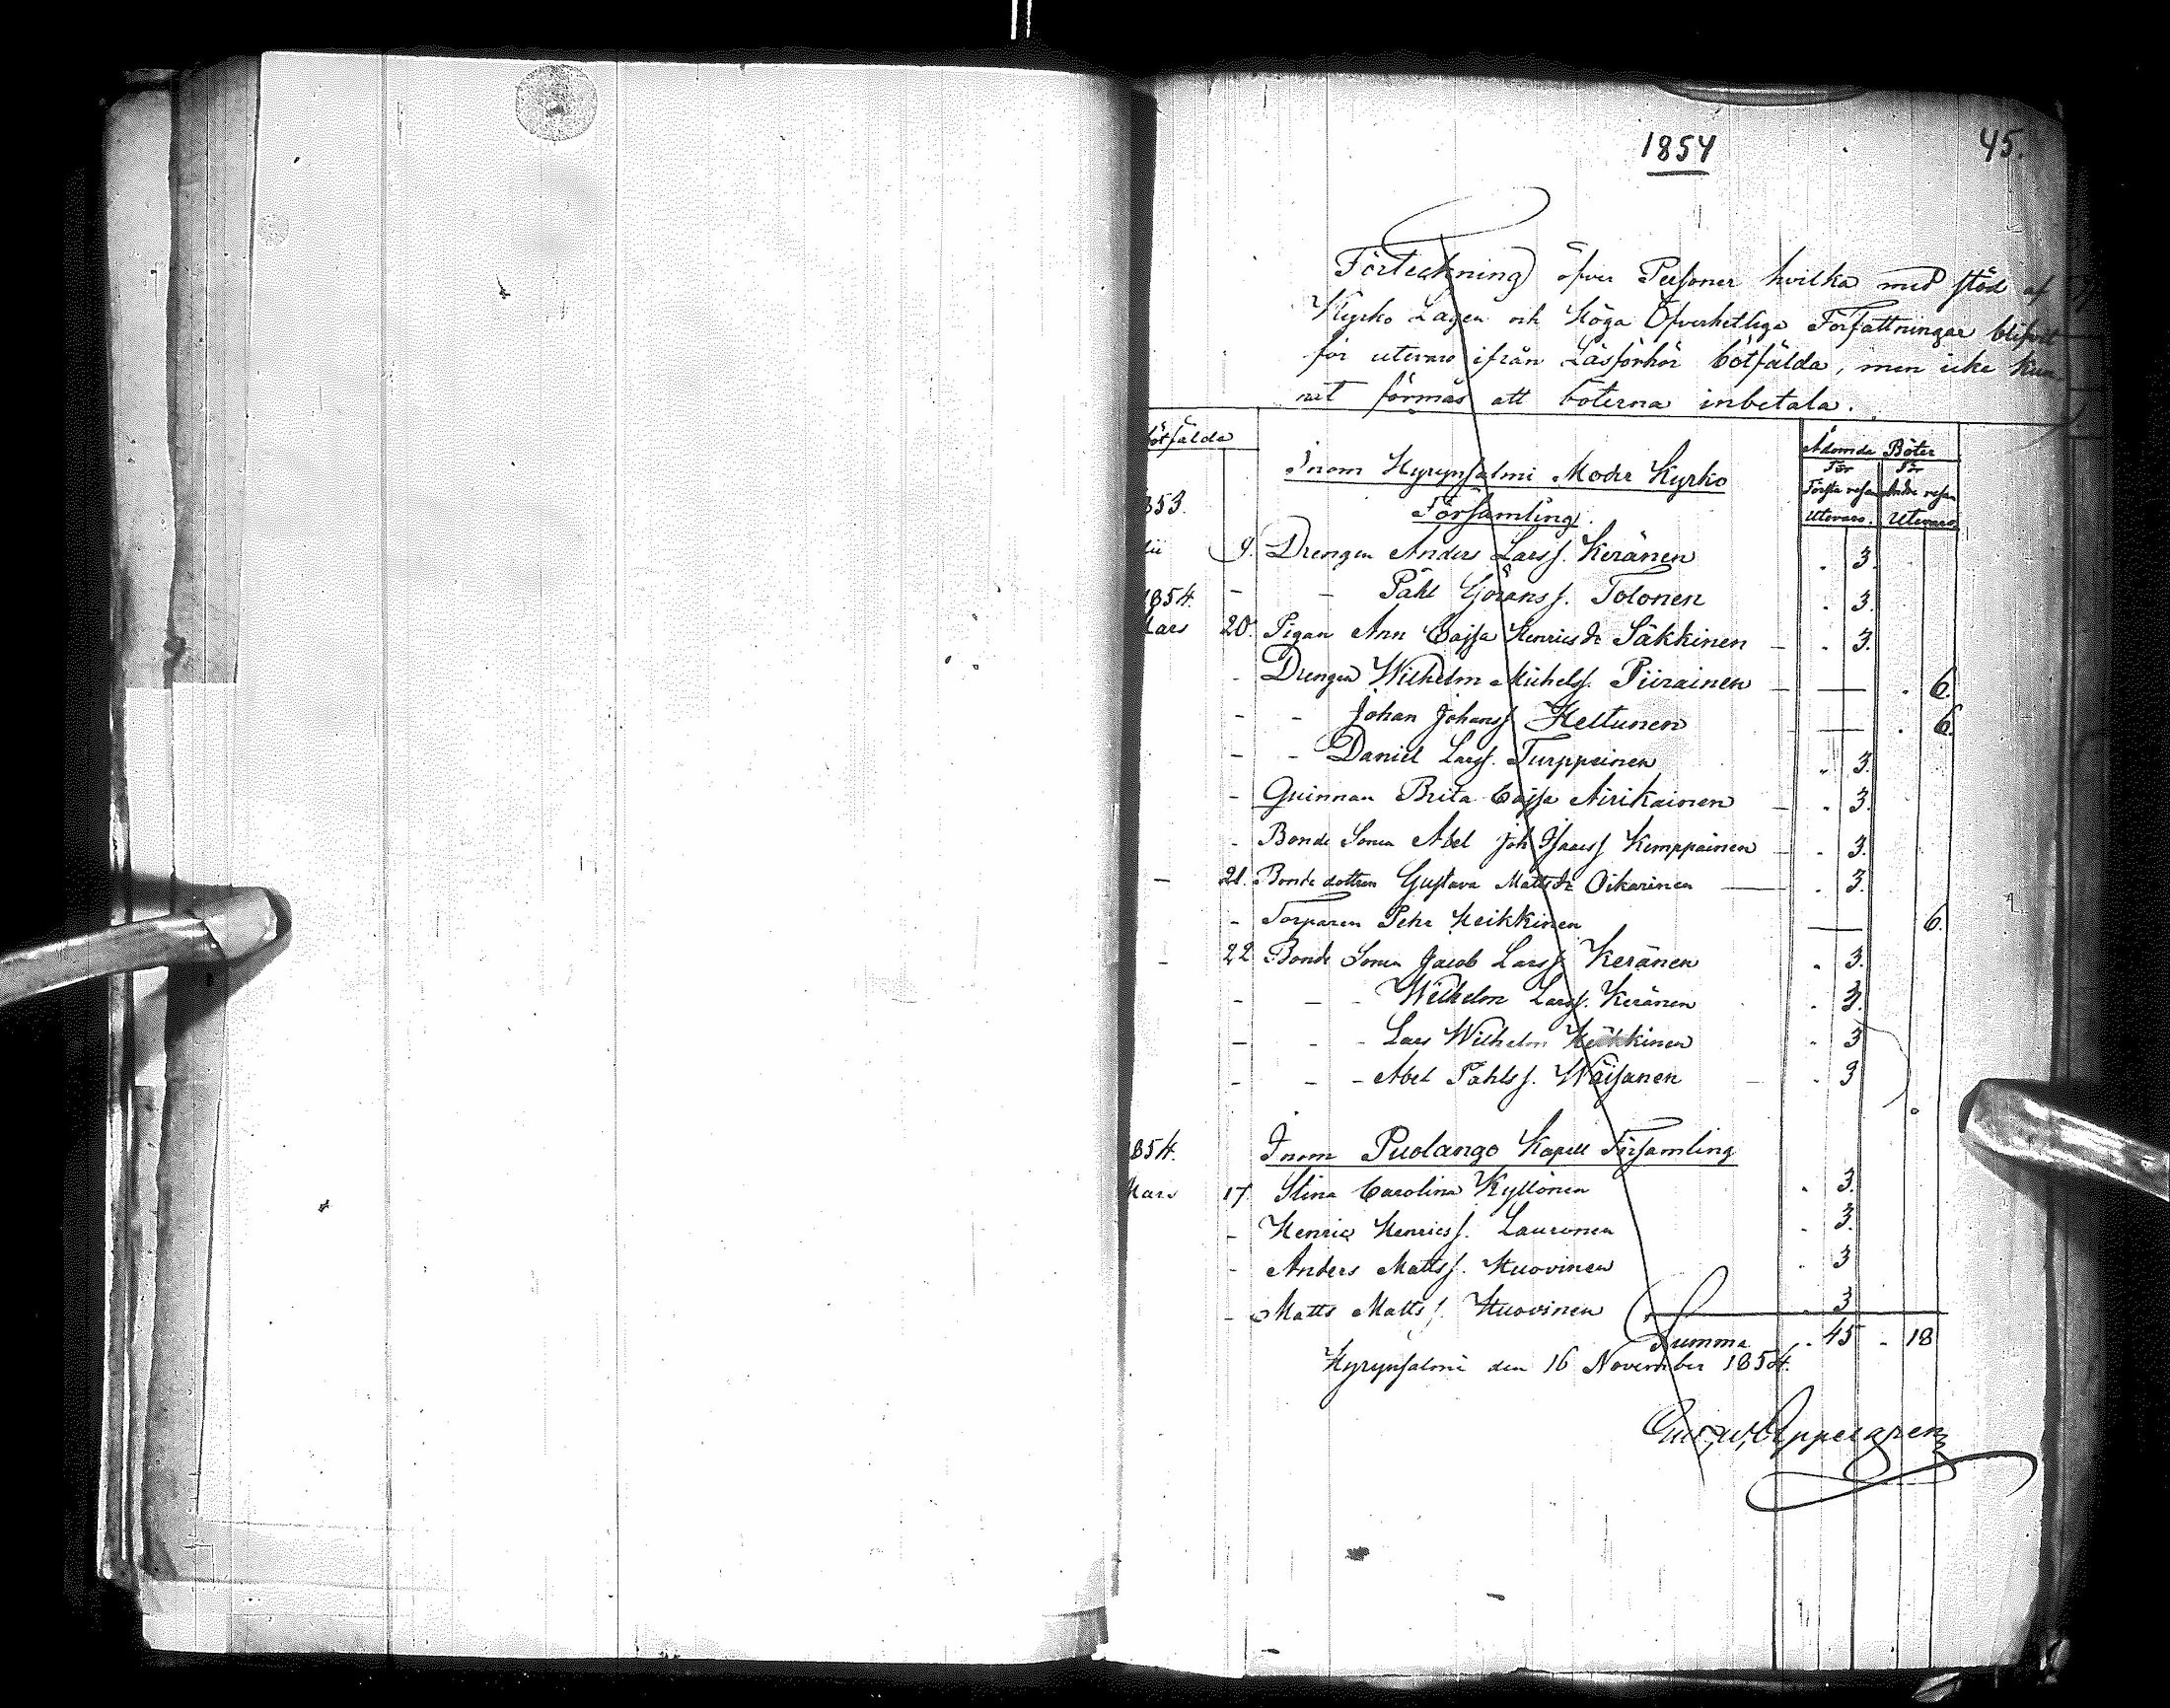 1854
45.
Förteckning öfver Personer hvilka med stöd af
Kyrko Lagen och Höga Öfverhetliga Författningar blifvit
för utevaro ifrån Läsförhör bötfälda, men icke kun
nat förmås att böterna inbetala.
bötfälda
Ådömda Böter
För För
Första resan Andra resan
Utevaro. Utevaro
Inom Hyrynsalmi Moder Kyrko
Församling.
853.
9. Drengen Anders Larss. Keränen . 3.
- - Påhl Göranss. Tolonen . 3.
1854.
Mars 20. Pigan Ann Cajsa Henricsdr Säkkinen - . 3.
- Drengen Wilhelm Michelss. Piirainen - — . 6.
- - Johan Johanss Heltunen — . 6.
- - Daniel Larss. Turppeinen " 3.
- Quinnan Brita Cajsa Airikainen - . 3.
- Bonde Sonen Abel Joh Isaacss Kemppainen - . 3.
- 21. Bonde dottren Gustava Mattsdr Oikarinen — . 3.
- Torparen Pehr Heikkinen — 6.
- 22 Bonde Sonen Jacob Larss Keränen . 3.
- - - Wilhelm Larss. Keränen . 3.
- - - Lars Wilhelm Heikkinen . 3
- - - Abel Påhlss. Wäisänen - . 3
854. Inom Puolango Kapell Församling
Mars 17. Stina Carolina Kyllönen . 3.
- Henric Henricss. Lauronen . 3.
- Anders Mattss. Huovinen . 3
- Matts Matts s. Huovinen . 3
Summa . 45 - 18
Hyrynsalmi den 16 November 1854.